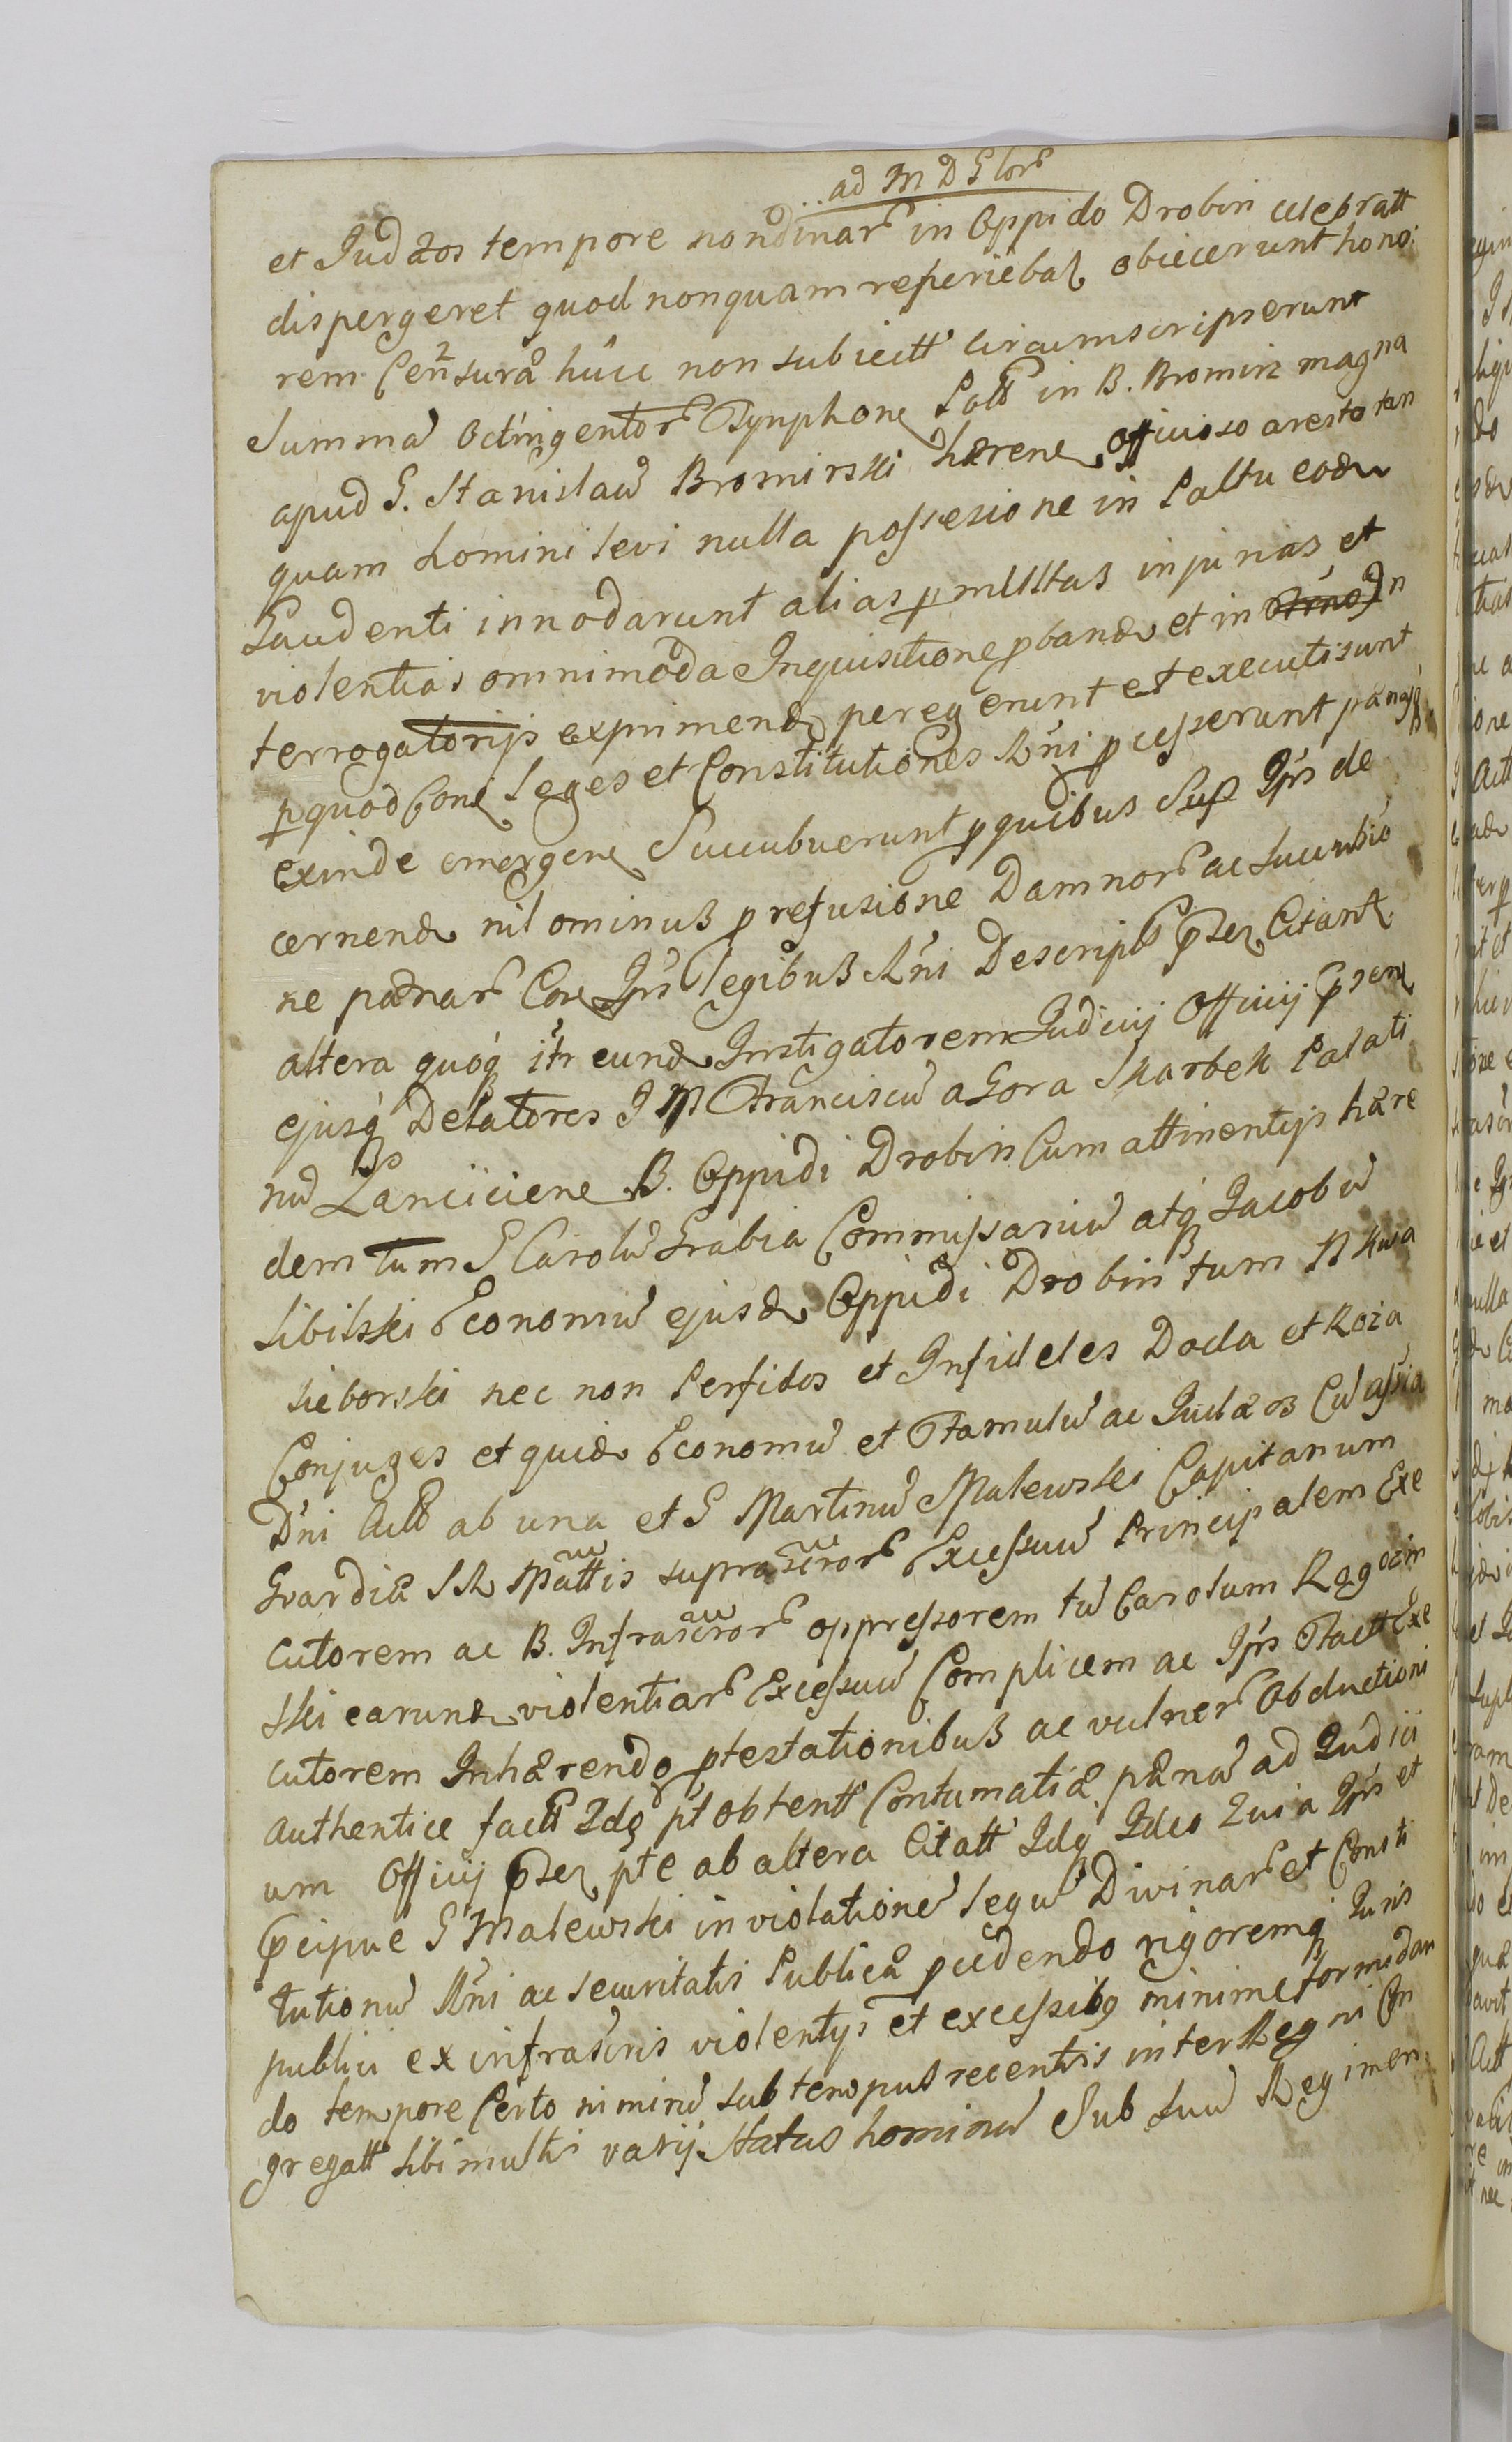 ad M D G lor
et Judæos tempore nondinar in Oppido Drobin celebratt
dispergeret quod nonquam reperiebat obiecerunt hono:
rem Censura huic non subiectt circumscripserunt
Summa Octingentor Tynphone Pol in B. Bromirz magna
apud G. Stanislaw Bromirski hærene officioso aresto tan
quam homini levi nulla possesione in Paltu eodem
Gaudenti innodarunt alias p multas injurias et
violentias omnimoda Inquisitione pband et in In
terrogatorijs exprimend peregerunt et executi sunt
p quod Cone Leges et Constitutiones Rni pcesserunt pænasq
exinde emergene Succubuerunt p quibus Sup Jris de
cernend nil ominus p refusione Damnor ac Succubio
ne pænar Cone Jris legibus Rni Descript pser Citant
altera quoq itr eund Instigatorem Judicij Officij psene
ejusq Delatores J M Franciscu a Gora Skarbek Palati
nu Lanciciene B. Oppidi Drobin Cum attinentijs hære
dem tum G Carolu Grabia Commissariu atq Jacobu
Sibilski Economu ejusd Oppidi Drobin tum N Kwia
sieborski nec non Perfidos et Infideles Docla et Roza
Conjuges et quid Economu et Famulu ac Judæos
Dni Act ab una et G Martinu Malewski Capitanum
Gvardiæ S R Mattis suprascror Excessuu Principalem Exe
cutorem ac B. Infrascror oppressorem tu Carolum Rogozin
ski earund violentiar Excessuu Complicem ac Jris Factt Exe
cutorem Inhærendo ptestationibus ac vulner Obductioni
authentice factt Idq pt obtentt Contumatiæ pæna ad Judicij
um Officij pser pte ab altera Citatt Idq Ideo Quia Jris et
pcipue G Malewski in violatione legu Divinar et Consti
tutionu Rni ac securitatis Publicæ pcedendo rigoremq Juris
publici ex infrascris violentijs et excessibq minime formidan
do tempore Certo nimiru sub tempus recentis interRegni Con
gregatt sibi multis varij Status hominu Sub suu Regimen